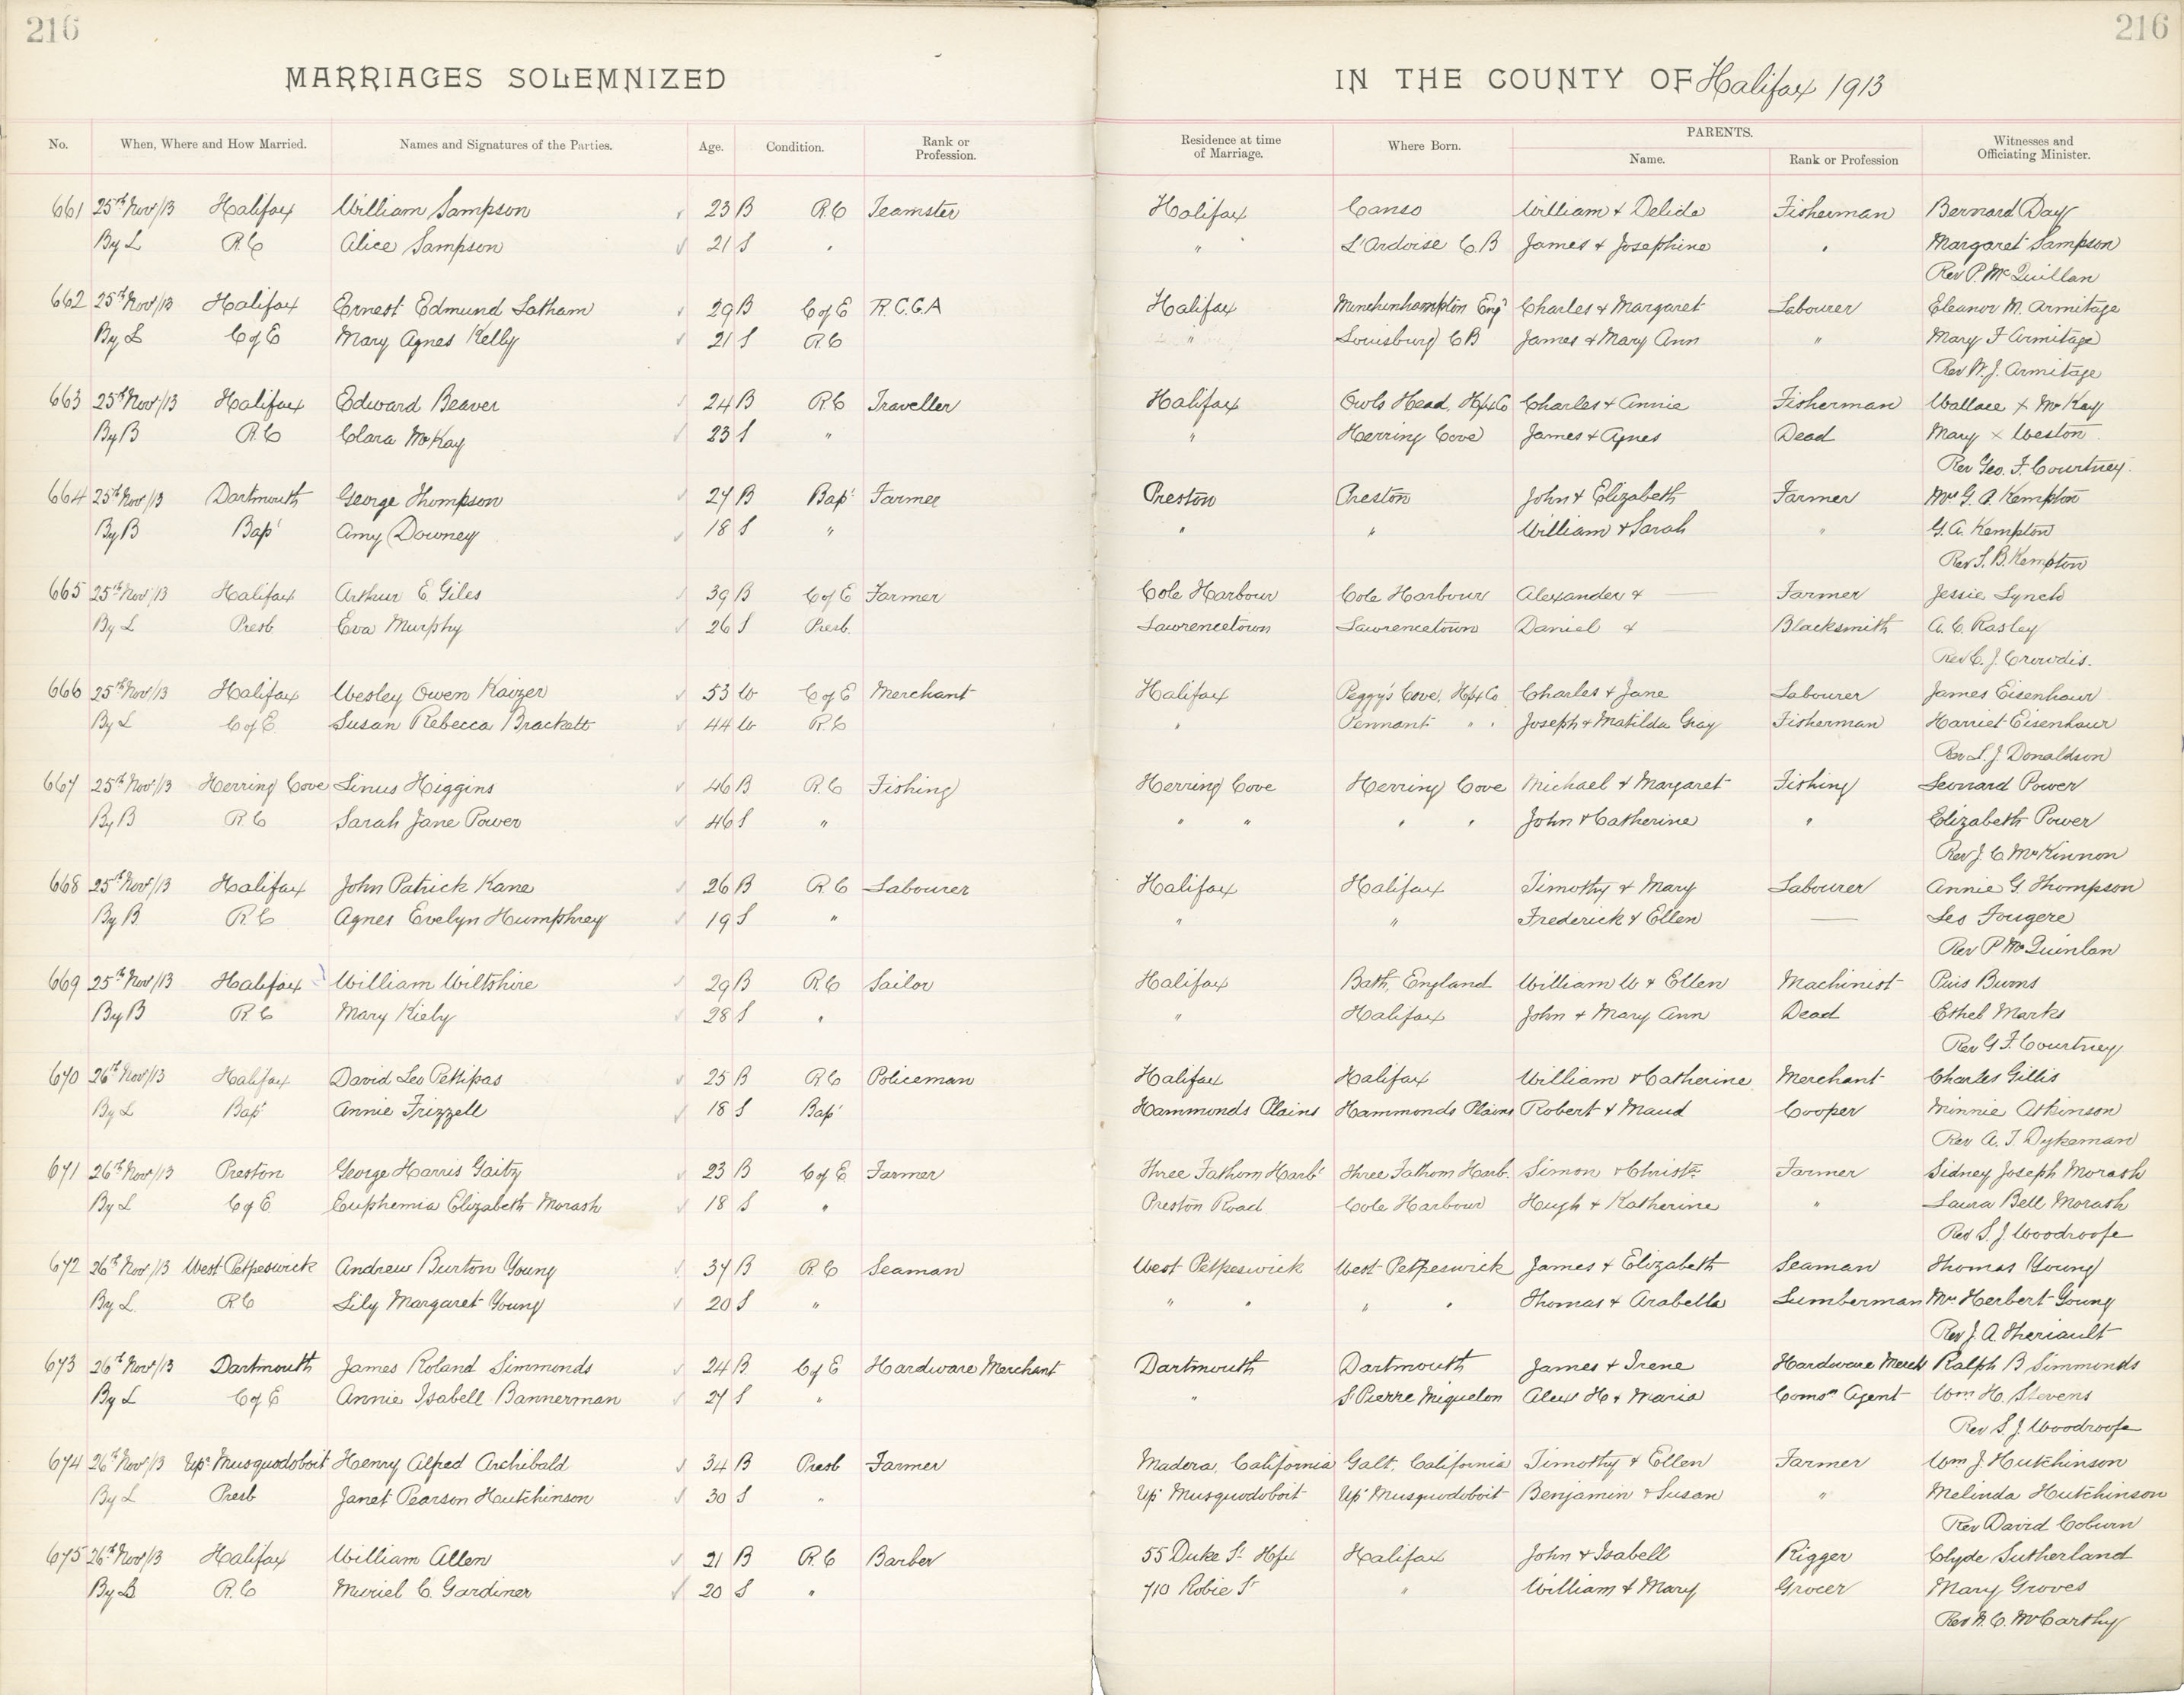 216
216
MARRIAGES SOLEMNIZED IN THE COUNTY OF Halifax 1913
No. When, Where and How Married. Names and Signatures of the Parties. Age. Condition. Rank or Profession. Residence at time of Marriage. Where Born. PARENTS. Name. Rank or Profession Witnesses and Officiating Minister.
661 25th Nov/13 Halifax William Sampson 23 B R.C Teamster Halifax Canso William & Delida Fisherman Bernard Day
By L R.C Alice Sampson 21 S " " L'Ardoise C.B James & Josephine " Margaret Sampson
Rev P. McQuillan
662 25th Nov/13 Halifax Ernest Edmund Latham 29 B C of E R.C.G.A Halifax Minchinhampton Eng' Charles & Margaret Labourer Eleanor M. Armitage
By L C of E Mary Agnes Kelly 21 S R.C " Louisburg C B James & Mary Ann " Mary F Armitage
Rev W. J. Armitage
663 25th Nov/13 Halifax Edward Beaver 24 B R.C Traveller Halifax Owls Head, Hfx Co Charles & Annie Fisherman Wallace X McKay
By B R.C Clara McKay 23 S " " Herring Cove James & Agnes Dead Mary X Weston
Rev Geo. F. Courtney.
664 25th Nov/13 Dartmouth George Thompson 27 B Bap' Farmer Preston Preston John & Elizabeth Farmer Mrs G. A. Kempton
By B Bap' Amy Downey 18 S " " " William & Sarah " G. A. Kempton
Rev S. B. Kempton
665 25th Nov/13 Halifax Arthur E. Giles 39 B C of E Farmer Cole Harbour Cole Harbour Alexander & — Farmer Jessie Lynch
By L Presb Eva Murphy 26 S Presb. Lawrencetown Lawrencetown Daniel & — Blacksmith A. C. Rasley
Rev C. J. Crowdis.
666 25th Nov/13 Halifax Wesley Owen Kaizer 53 W C of E Merchant Halifax Peggy's Cove, Hfx Co Charles & Jane Labourer James Eisenhaur
By L C of E Susan Rebecca Brackett 44 W R.C " Pennant " " Joseph & Matilda Gray Fisherman Harriet Eisenhaur
Rev L. J. Donaldson
667 25th Nov/13 Herring Cove Linus Higgins 46 B R.C Fishing Herring Cove Herring Cove Michael & Margaret Fishing Leonard Power
By B R.C Sarah Jane Power 46 S " " " " " John & Catherine " Elizabeth Power
Rev J. C McKinnon
668 25th Nov/13 Halifax John Patrick Kane 26 B R.C Labourer Halifax Halifax Timothy & Mary Labourer Annie G. Thompson
By B. R.C Agnes Evelyn Humphrey 19 S " " " Frederick & Ellen — Leo Fougere
Rev P McQuinlan
669 25th Nov/13 Halifax William Wiltshire 29 B R.C Sailor Halifax Bath, England William W & Ellen Machinist Pius Burns
By B R.C Mary Kiely 28 S " " Halifax John & Mary Ann Dead Ethel Marks
Rev G F. Courtney
670 26th Nov/13 Halifax David Leo Pettipas 25 B R.C Policeman Halifax Halifax William & Catherine Merchant Charles Gillis
By L Bap' Annie Frizzell 18 S Bap' Hammonds Plains Hammonds Plains Robert & Maud Cooper Minnie Atkinson
Rev A. J. Dykeman
671 26th Nov/13 Preston George Harris Gaitz 23 B C of E Farmer Three Fathom Harb' Three Fathom Harb. Simon & Christe Farmer Sidney Joseph Morash
By L C of E Euphemia Elizabeth Morash 18 S " Preston Road Cole Harbour Hugh & Katherine " Laura Bell Morash
Rev S. J. Woodroofe
672 26th Nov/13 West Petpeswick Andrew Burton Young 37 B R.C Seaman West Petpeswick West Petpeswick James & Elizabeth Seaman Thomas Young
By L. R.C Lily Margaret Young 20 S " " " " " Thomas & Arabella Lumberman Mrs Herbert Young
Rev J. A. Theriault
673 26th Nov/13 Dartmouth James Roland Simmonds 24 B C of E Hardware Merchant Dartmouth Dartmouth James & Irene Hardware Merch Ralph B Simmonds
By L C of E Annie Isabell Bannerman 27 S " " St Pierre Miquelon Alex H & Maria Comsn Agent Wm H. Stevens
Rev S. J. Woodroofe
674 26th Nov/13 Upr Musquodoboit Henry Alfred Archibald 34 B Presb Farmer Madera, California Galt, California Timothy & Ellen Farmer Wm J. Hutchinson
By L Presb Janet Pearson Hutchinson 30 S " Up' Musquodoboit Up' Musquodoboit Benjamin & Susan " Melinda Hutchinson
Rev David Coburn
675 26th Nov/13 Halifax William Allen 21 B R.C Barber 55 Duke St Hfx Halifax John & Isabell Rigger Clyde Sutherland
By B R.C Muriel C. Gardiner 20 S " 710 Robie St " William & Mary Grocer Mary Groves
Rev W. C. McCarthy